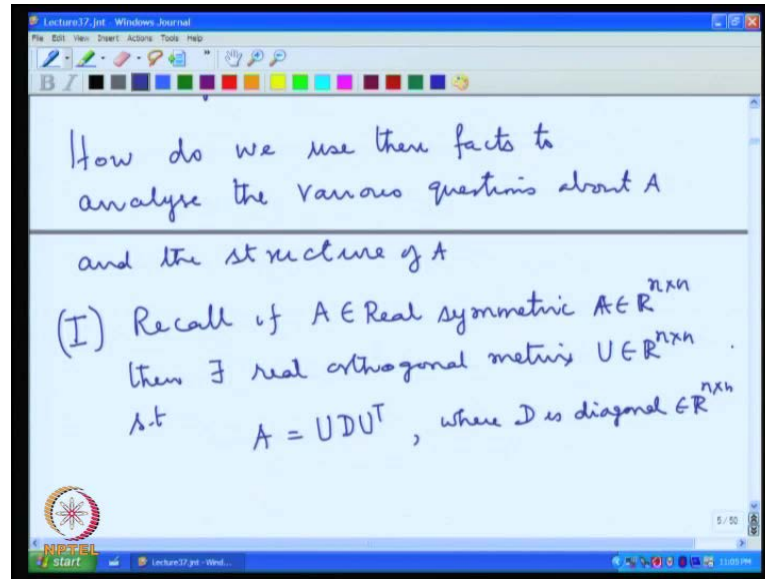 Lecture37.jnt - Windows Journal
File Edit View Insert Actions Tools Help
B I
How do we use these facts to
analyse the various questions about A
and the structure of A
(I) Recall if A ∈ Real symmetric A ∈ ℝⁿˣⁿ
then ∃ real orthogonal metrix U ∈ ℝⁿˣⁿ.
s.t A = UDUᵀ, where D is diagonal ∈ ℝⁿˣⁿ
5 / 50
NPTEL
start Lecture37.jnt - Wind... 11:05 PM